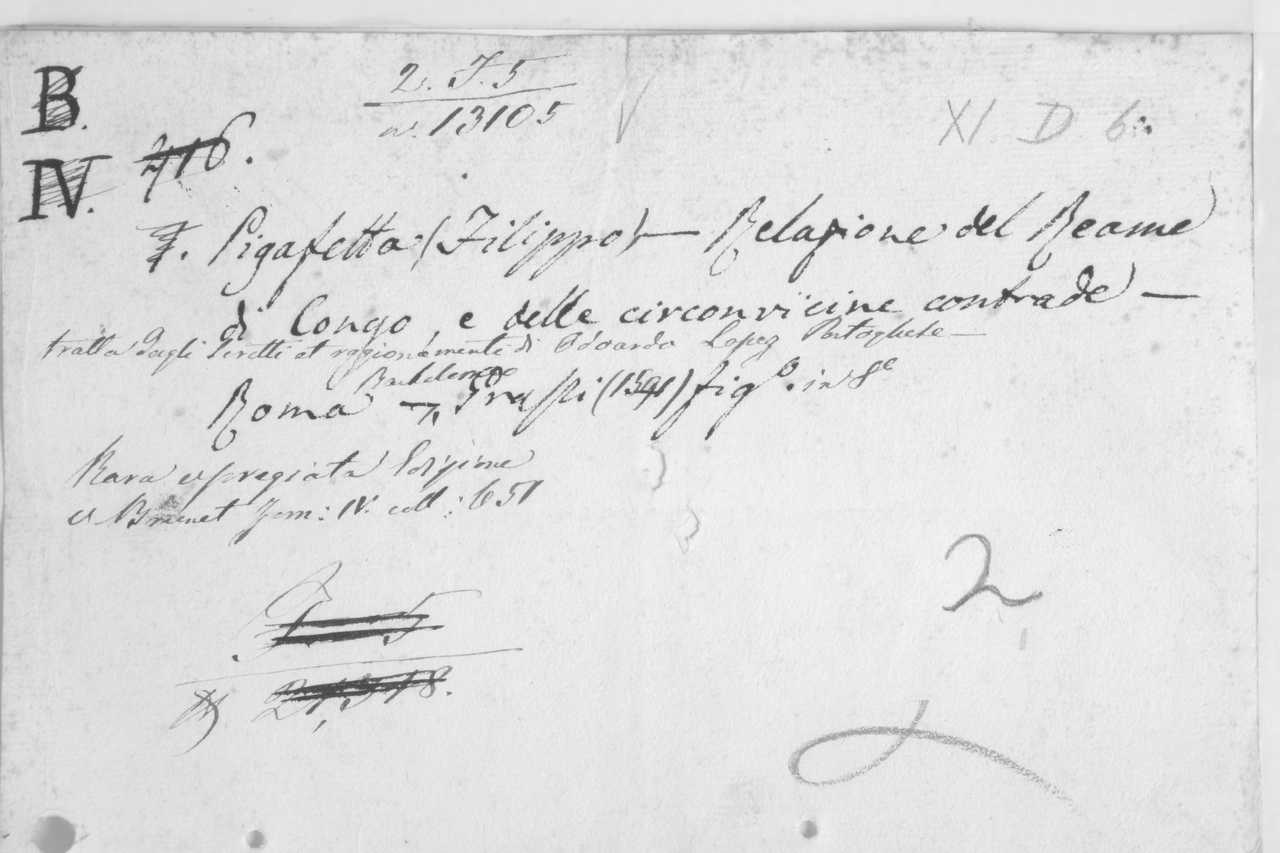 B.
IV.
2. J. 5
n. 13105
XI. D 6.
416.
Pigafetta (Filippo) — Relazione del Reame
di Congo, e delle circonvicine contrade —
tratta dagli scritti et ragionamente di Odoardo Lopez Portoghese —
Bartolomeo
Roma — Grassi (1591) fig.° in 8°
Rara e pregiata Edizione
v Brunet Tom: IV. coll: 651
2